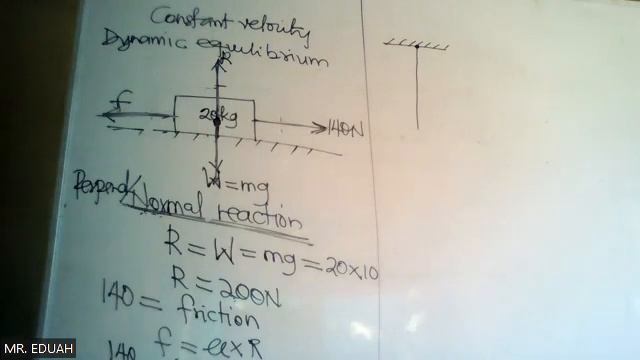 Constant velocity
Dynamic equilibrium
R
f
20kg
140N
W = mg
Perpend/Normal reaction
R = W = mg = 20×10
R = 200N
140 = friction
140 f = μ×R
MR. EDUAH